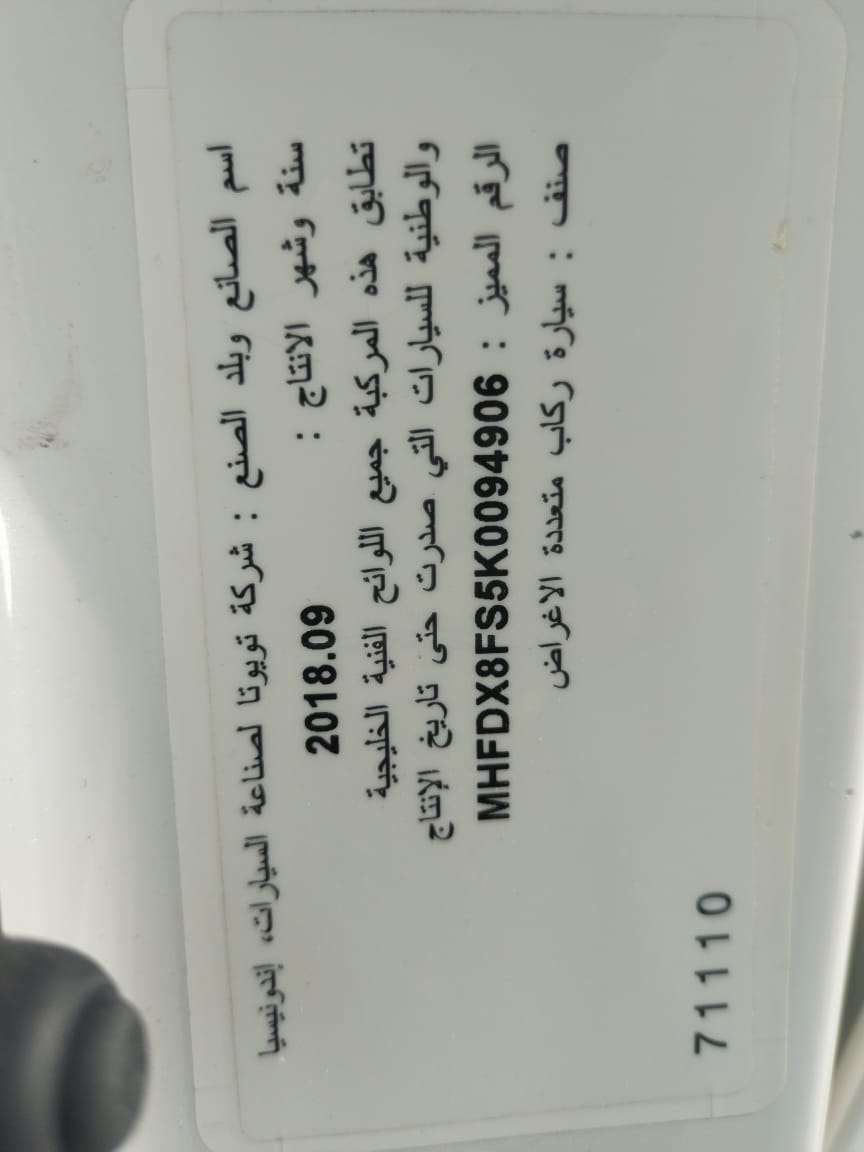 اسم الصانع وبلد الصنع : شركة تويوتا لصناعة السيارات، إندونيسيا
سنة وشهر الانتاج : 2018.09
تطابق هذه المركبة جميع اللوائح الفنية الخليجية
والوطنية للسيارات التي صدرت حتى تاريخ الإنتاج
الرقم المميز : MHFDX8FS5K0094906
صنف : سيارة ركاب متعددة الاغراض
71110